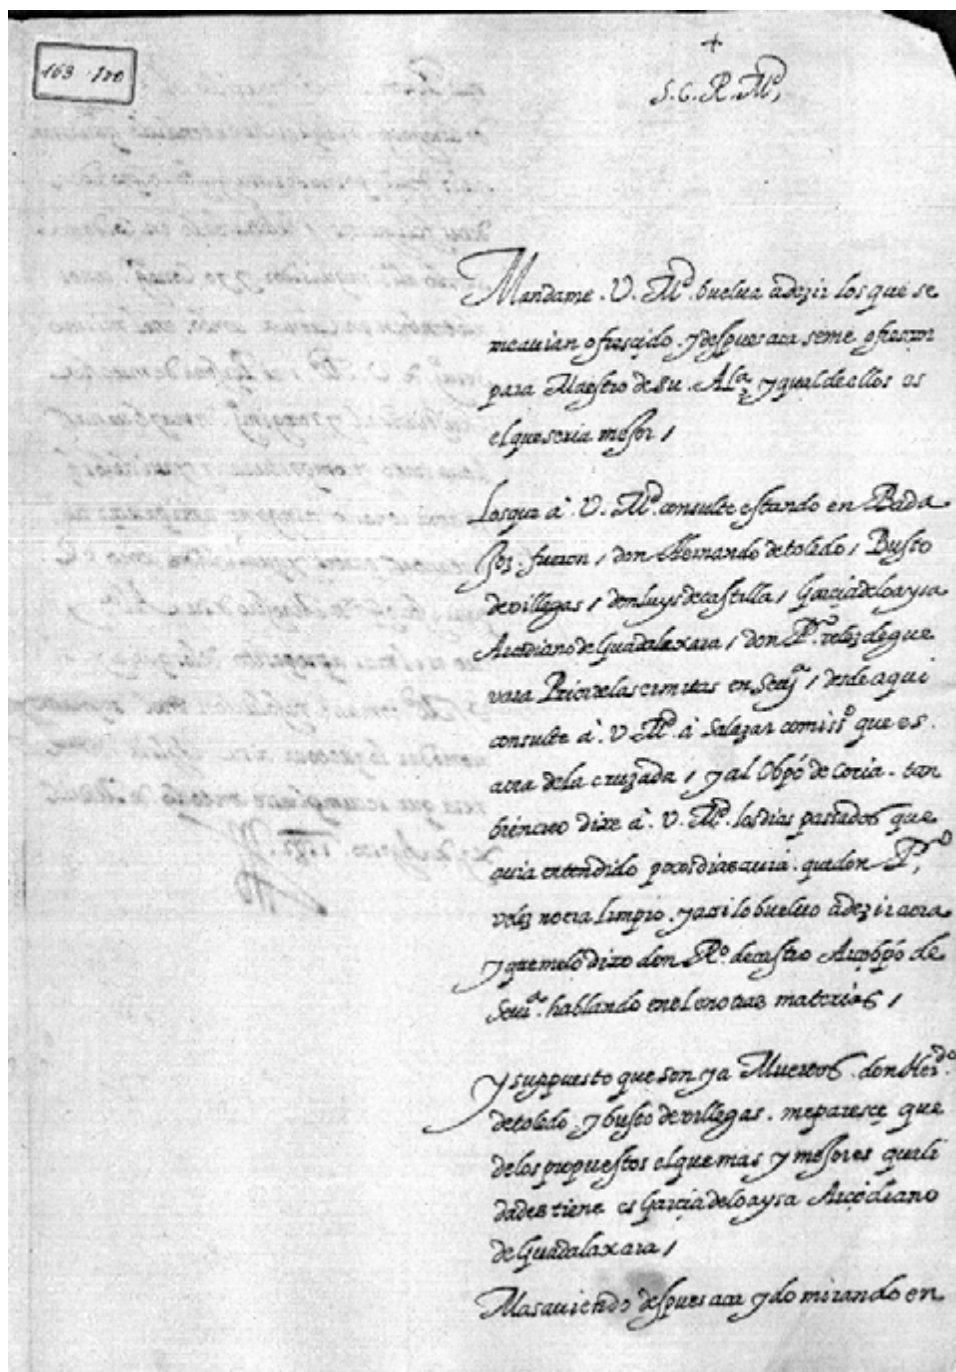 163 · 120
+
S. C. R. M.d
Mandame . V. M.d buelua a dezir los que se
me auian ofrescido . y despues aca se me ofrecen
para Maestro de su . Al.za y qual de ellos es
el que seria mejor /
Los que à . V. M.d consulte estando en Bada
Joz . fueron / don Hernando de toledo / Busto
de villegas / don luys de castilla / Garçia de loaysa
Arcediano de Guadalaxara / don P.o velez de gue
vara Prior de las ermitas en Seu.a / desde aqui
consulte à . V. M.d à Salazar comiss.o que es .
aora de la cruzada / y al Obpo de Coria . tan
bien creo dixe à . V. M.d los dias passados que
auia entendido pocos dias auia . que don P.o
velez no era limpio . y assi lo bueluo a dezir aora
y que me lo dixo don R.o de castro Arçobpo de
Seui.a . hablando en el en otras materias /
y suppuesto que son ya Muertos . don Her.do
de toledo . y busto de villegas . me paresçe que
de los propuestos el que mas y mejores quali
dades tiene es Garçia de loaysa Arçediano
de Guadalaxara /
Mas auiendo despues aca ydo mirando en